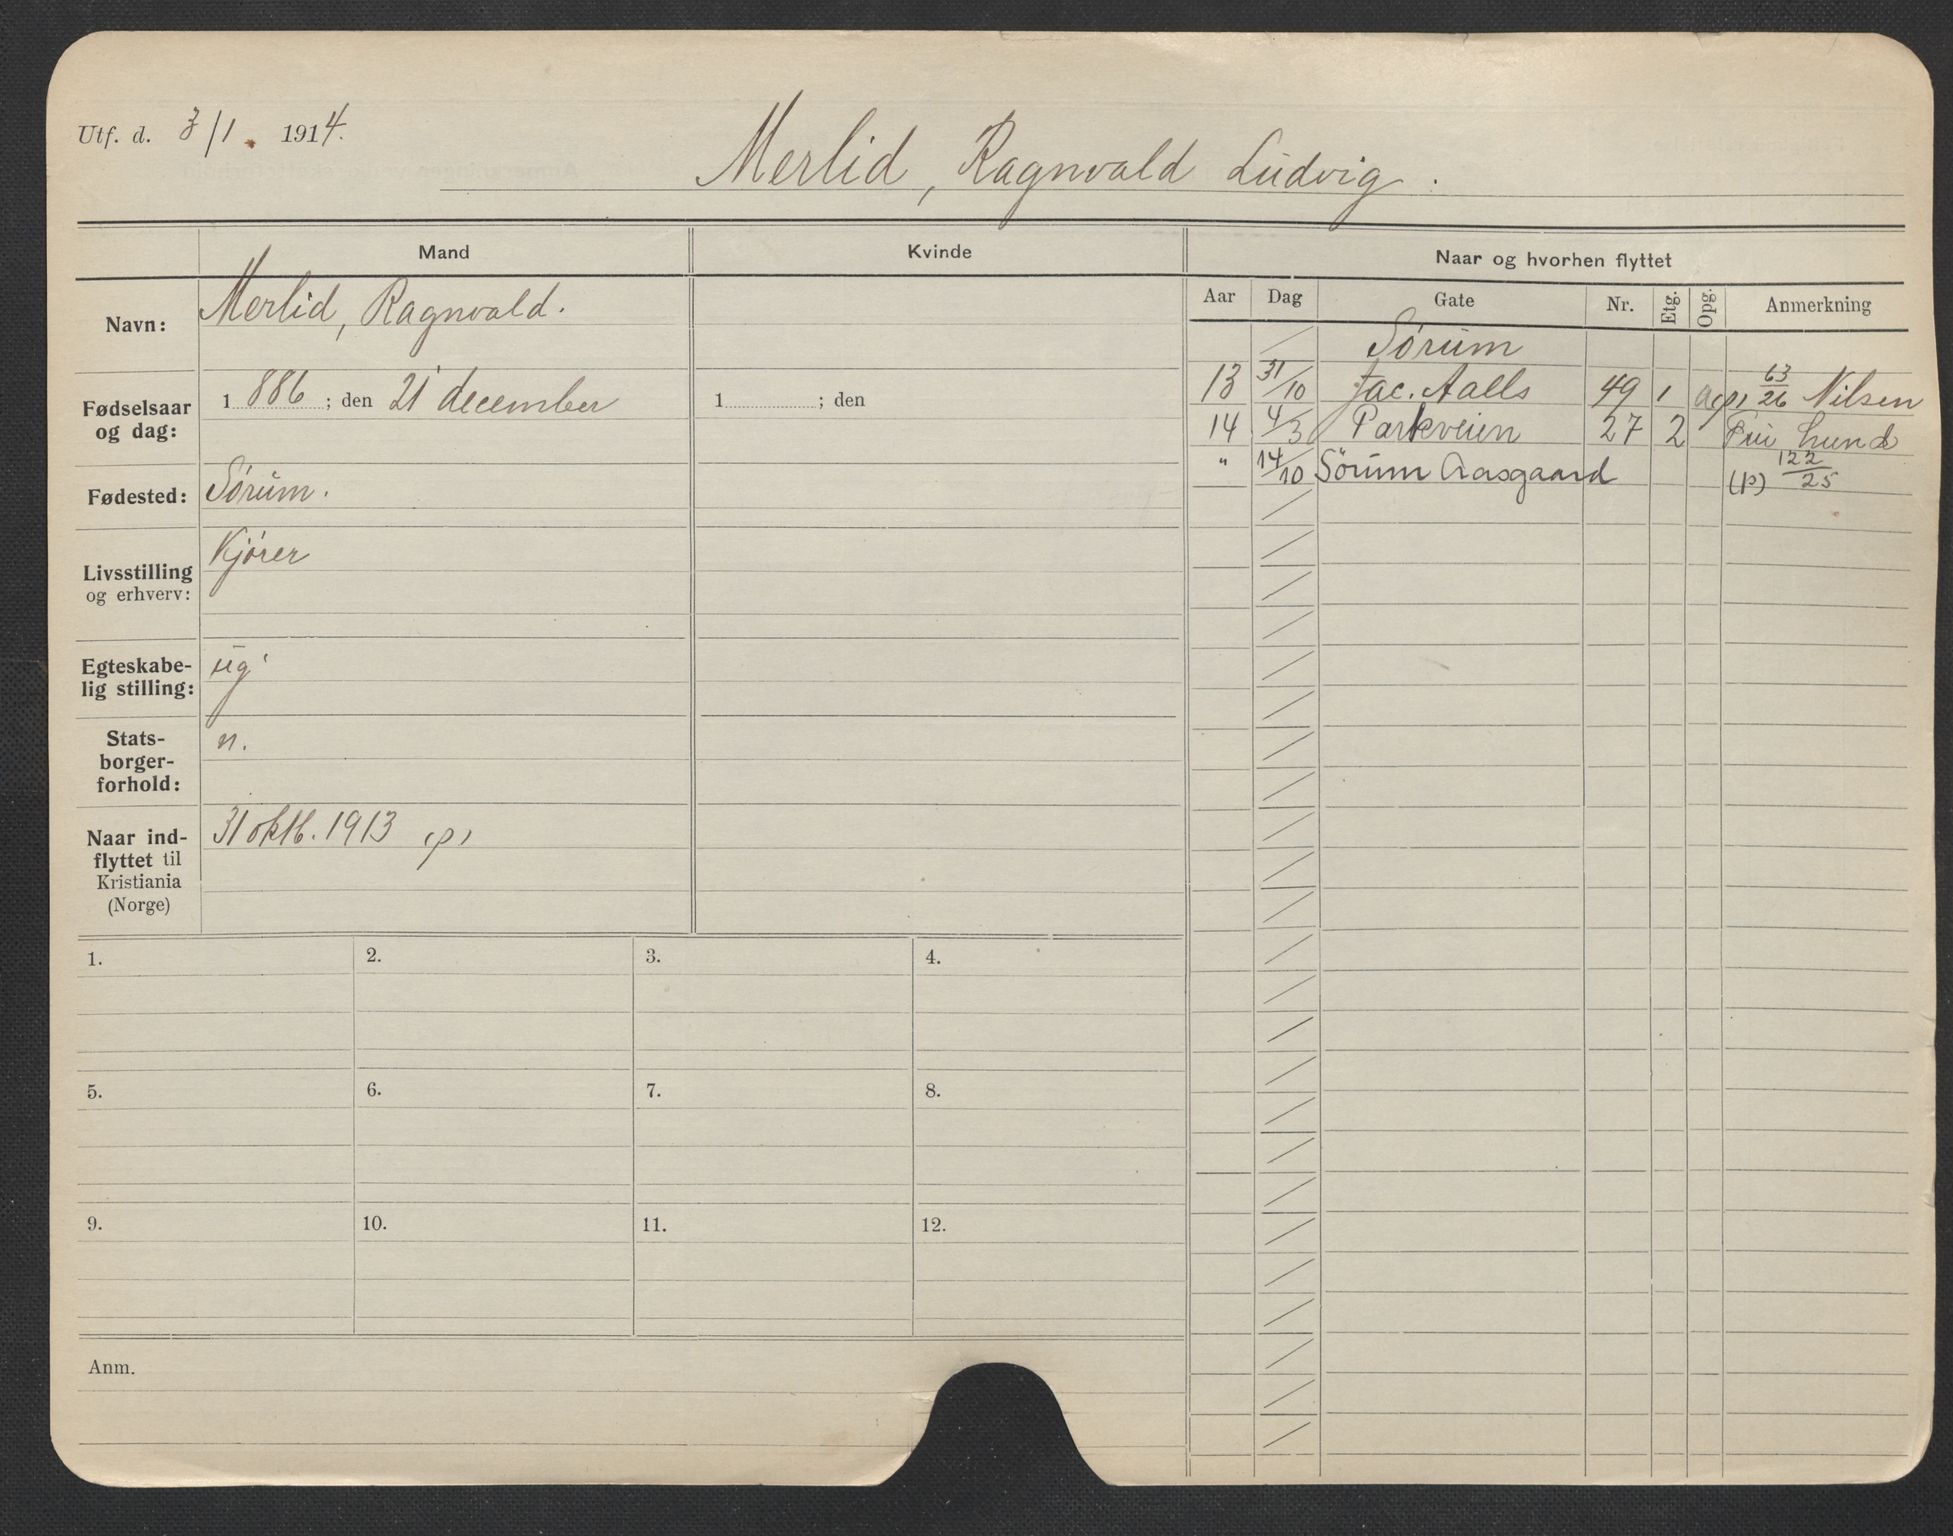 Utf. d. 3/1. 1914.
Merlid, Ragnvald Ludvig.
Mand
Kvinde
Naar og hvorhen flyttet
Navn:
Merlid, Ragnvald.
Fødselsaar og dag:
1886; den 21 december
1 ; den
Fødested:
Sørum.
Livsstilling og erhverv:
Kjører
Egteskabe-
lig stilling:
ug
Stats-
borger-
forhold:
n.
Naar ind-
flyttet til
Kristiania
(Norge)
31 oktb. 1913 (p)
Aar Dag Gate Nr. Etg. Opg. Anmerkning
Sørum
13 31/10 Jac. Aalls 49 1 a (p) 63/26 Nilsen
14 4/3 Parkveien 27 2 Lund
" 14/10 Sørum Aasgaard (p) 122/25
1. 2. 3. 4.
5. 6. 7. 8.
9. 10. 11. 12.
Anm.